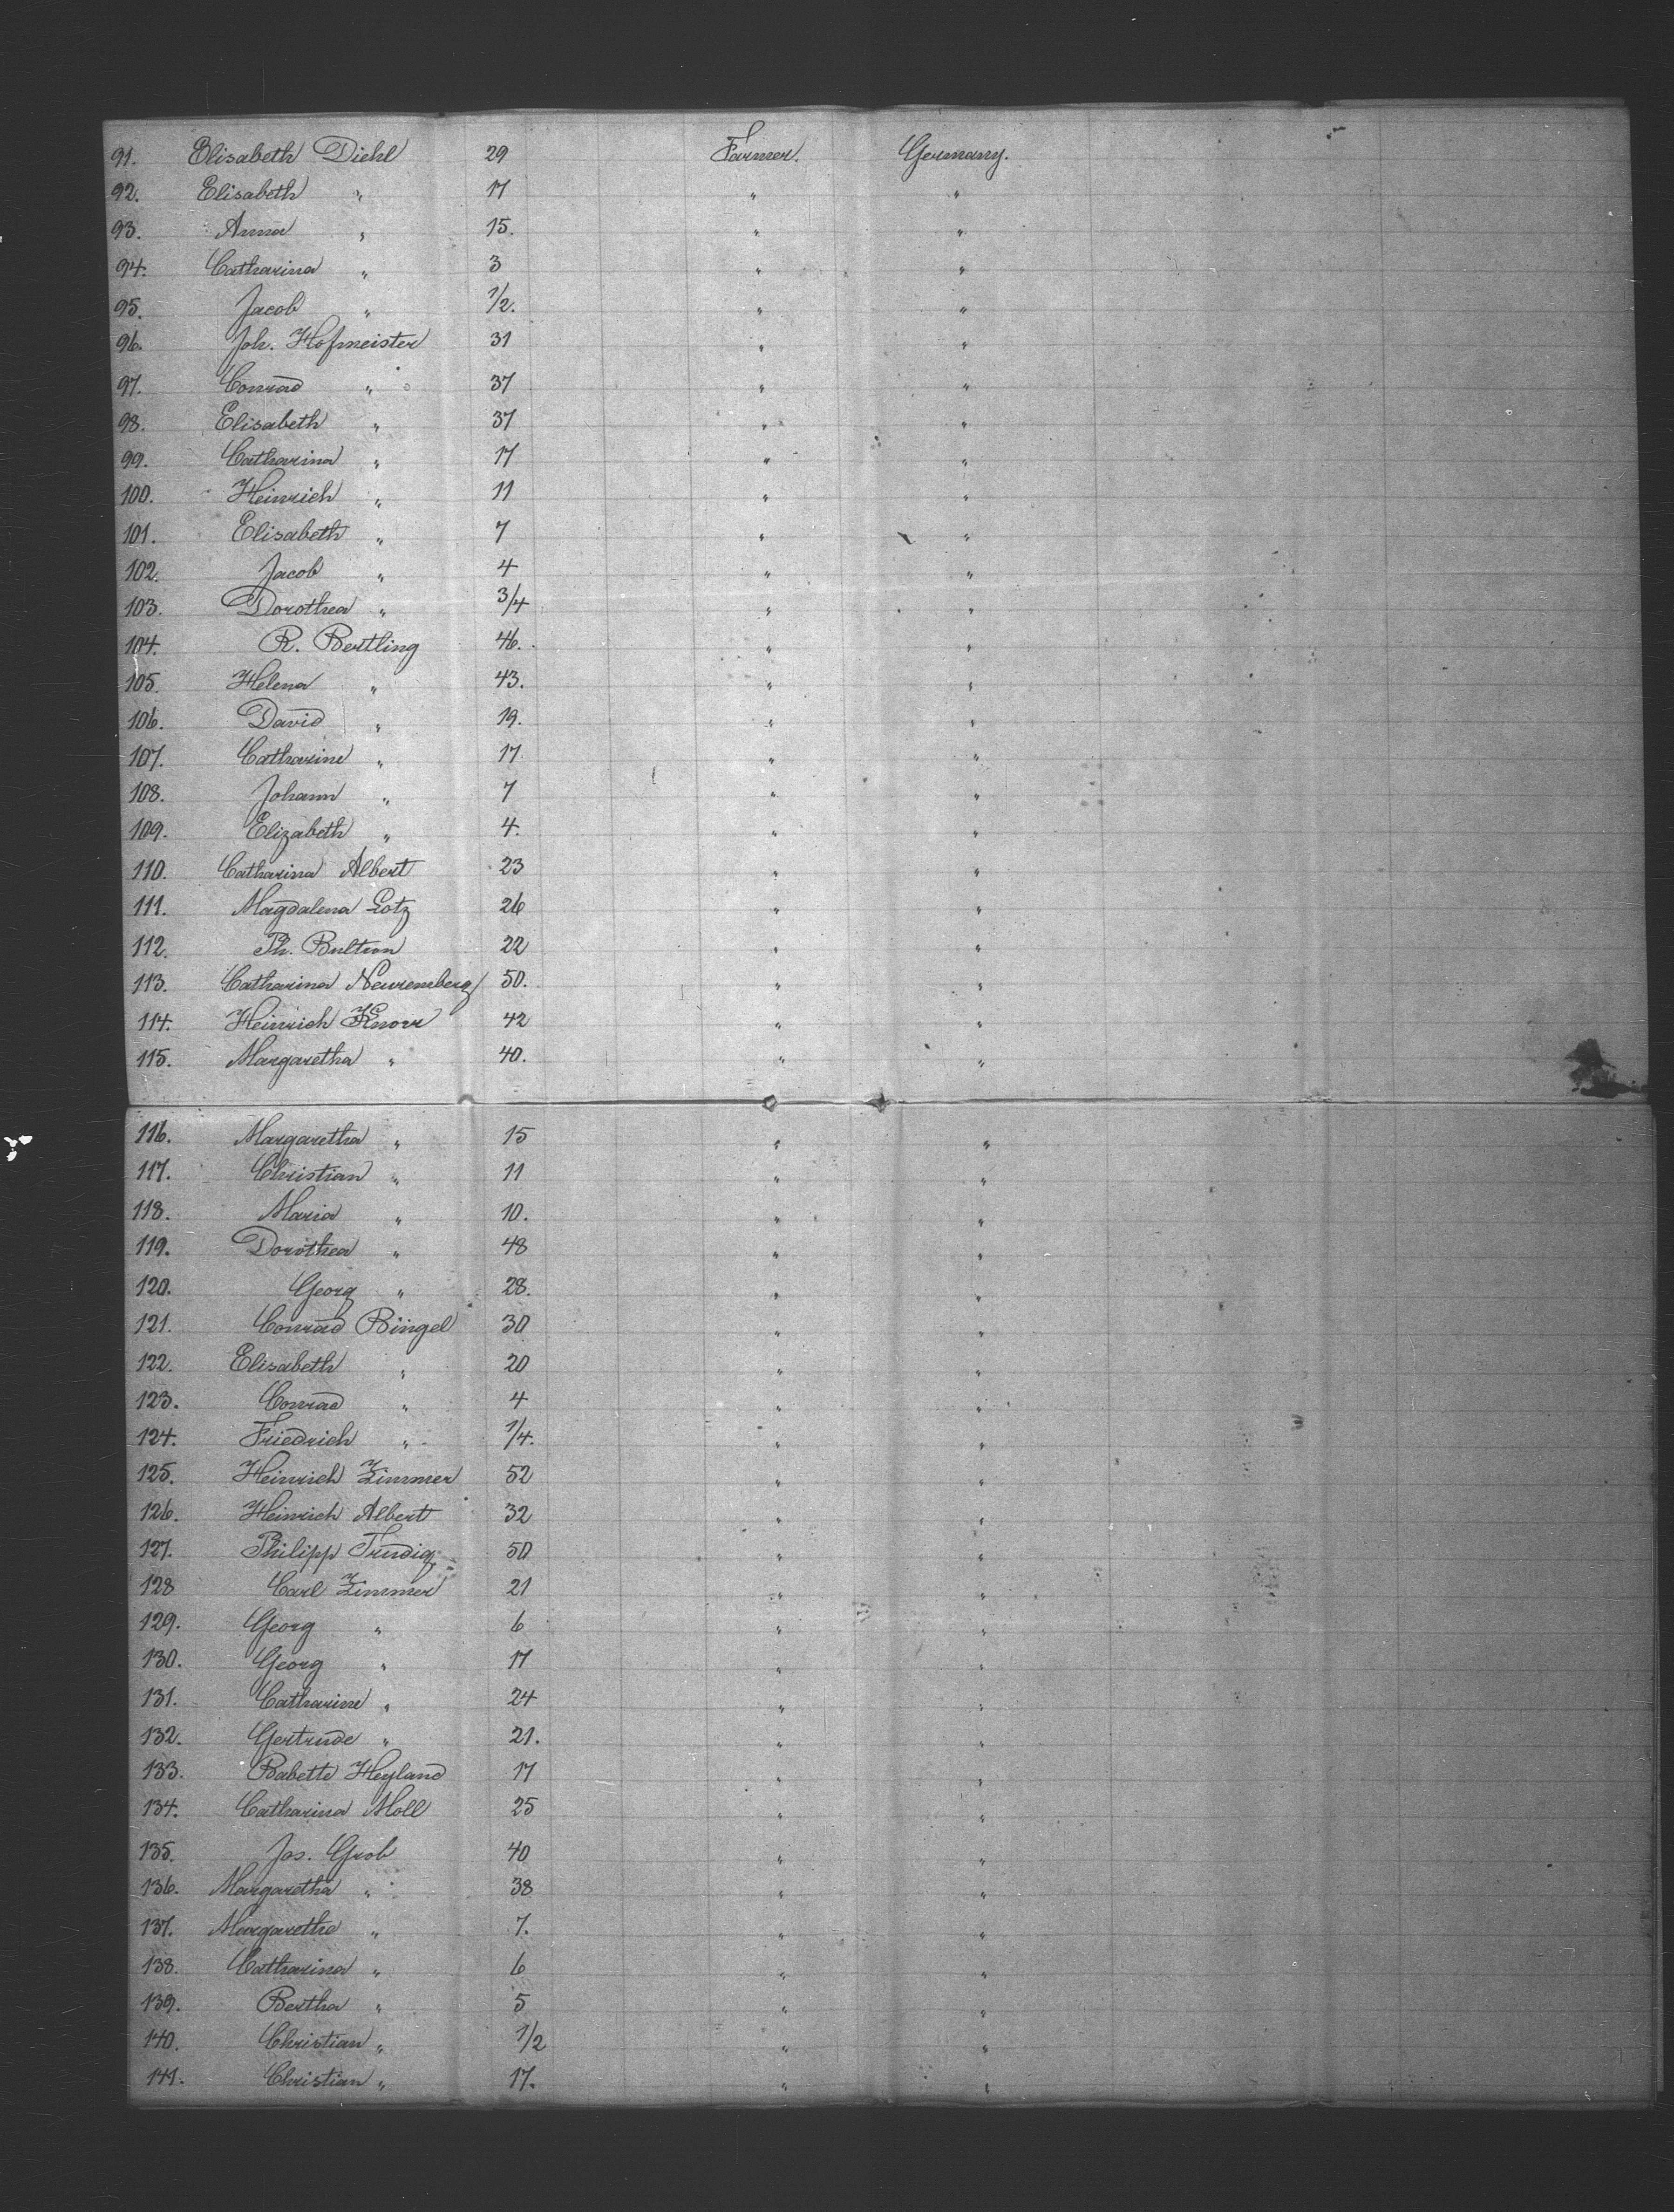 91. Elisabeth Diehl 29 Farmer. Germany.
92. Elisabeth " 17 " "
93. Anna " 15. " "
94. Catharina " 3 " "
95. Jacob " 1/2. " "
96. Joh. Hofmeister 31 " "
97. Conrad " 37 " "
98. Elisabeth " 37 " "
99. Catharina " 17 " "
100. Heinrich " 11 " "
101. Elisabeth " 7 " "
102. Jacob " 4 " "
103. Dorothea " 3/4 " "
104. R. Bertling 46. " "
105. Helena " 43. " "
106. David " 19. " "
107. Catharine " 17. " "
108. Johann " 7 " "
109. Elizabeth " 4. " "
110. Catharina Albert 23 " "
111. Magdalena Lotz 26 " "
112. Ph. Bultron 22 " "
113. Catharina Neuremberg 50. " "
114. Heinrich Knorr 42 " "
115. Margaretha " 40. " "
116. Margaretha " 15 " "
117. Christian " 11 " "
118. Maria " 10. " "
119. Dorothea " 48 " "
120. Georg " 28. " "
121. Conrad Bingel 30 " "
122. Elisabeth " 20 " "
123. Conrad " 4 " "
124. Friedrich " 1/4. " "
125. Heinrich Zimmer 52 " "
126. Heinrich Albert 32 " "
127. Philipp Trudig 50 " "
128 Carl Zimmer 21 " "
129. Georg " 6 " "
130. Georg " 17 " "
131. Catharine " 24 " "
132. Gertrude " 21. " "
133. Babette Heyland 17 " "
134. Catharina Moll 25 " "
135. Jos. Grob 40 " "
136. Margaretha " 38 " "
137. Margarethe " 7. " "
138. Catharina " 6 " "
139. Bertha " 5 " "
140. Christian " 1/2 " "
141. Christian " 17. " "